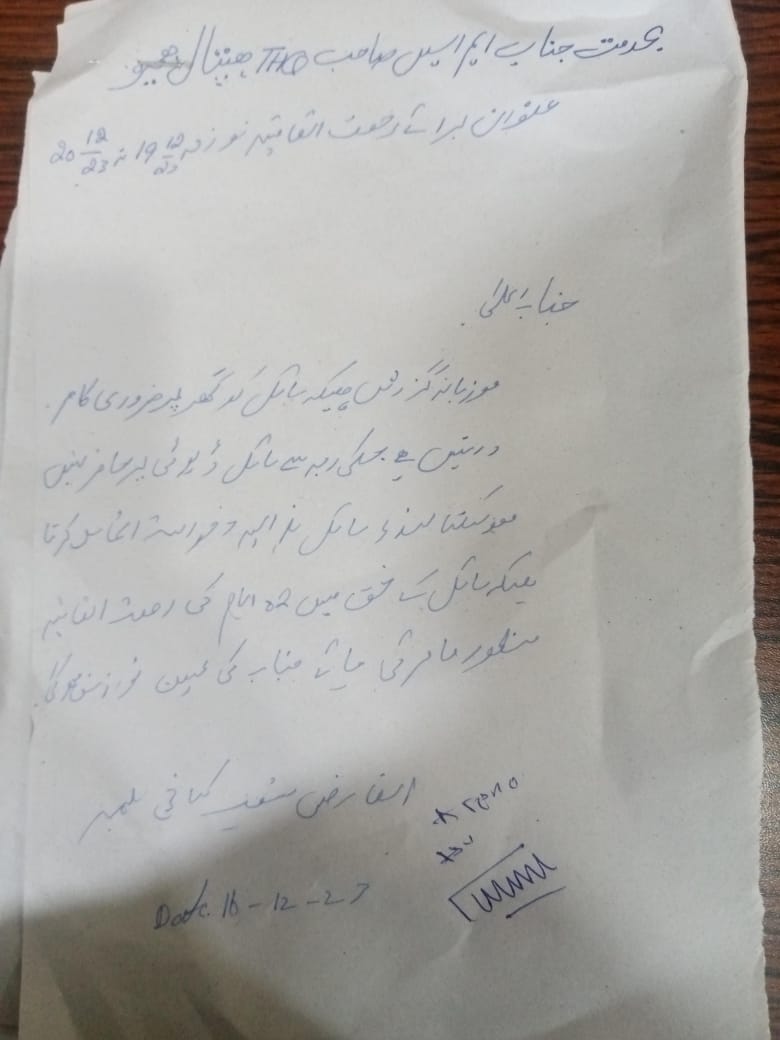 بخدمت جناب ایم ایس صاحب THQ ہسپتال
عنوان برائے رخصت اتفاقیہ مورخہ 19 12/23 تا 20 12/23
جناب اعلیٰ
موزبانہ گزارش ہیکہ سائل کو گھر پر ضروری کام
درپیش ہے جسکی وجہ سے سائل ڈیوٹی پر حاضر نہیں
ہوسکتا لہذا سائل بذریعہ درخواست التماس کرتا
ہیکہ سائل کے حق میں 02 ایام کی رخصت اتفاقیہ
منظور فرمائی جائے جناب کی عین نوازش ہوگی
العارض
Date. 16-12-23